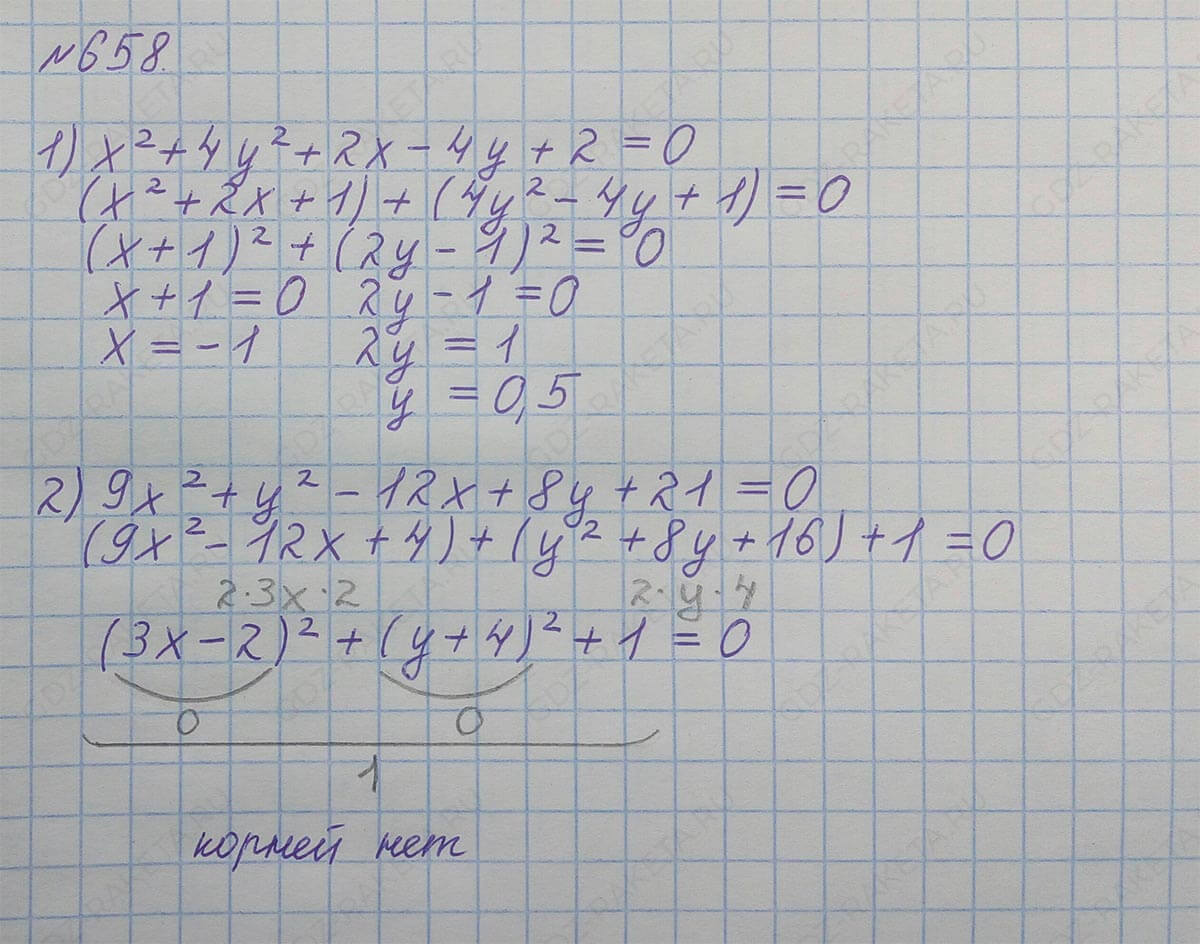 №658.
1) x² + 4y² + 2x - 4y + 2 = 0
(x² + 2x + 1) + (4y² - 4y + 1) = 0
(x + 1)² + (2y - 1)² = 0
x + 1 = 0 2y - 1 = 0
x = -1 2y = 1
y = 0,5
2) 9x² + y² - 12x + 8y + 21 = 0
(9x² - 12x + 4) + (y² + 8y + 16) + 1 = 0
2·3x·2 2·y·4
(3x - 2)² + (y + 4)² + 1 = 0
0 0
1
корней нет
GDZ-RAKETA.RU